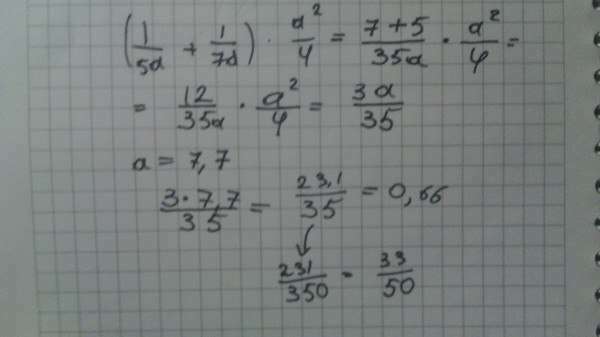 (1/5a + 1/7a) · a²/4 = 7+5/35a · a²/4 =
= 12/35a · a²/4 = 3a/35
a = 7,7
3·7,7/35 = 23,1/35 = 0,66
231/350 = 33/50